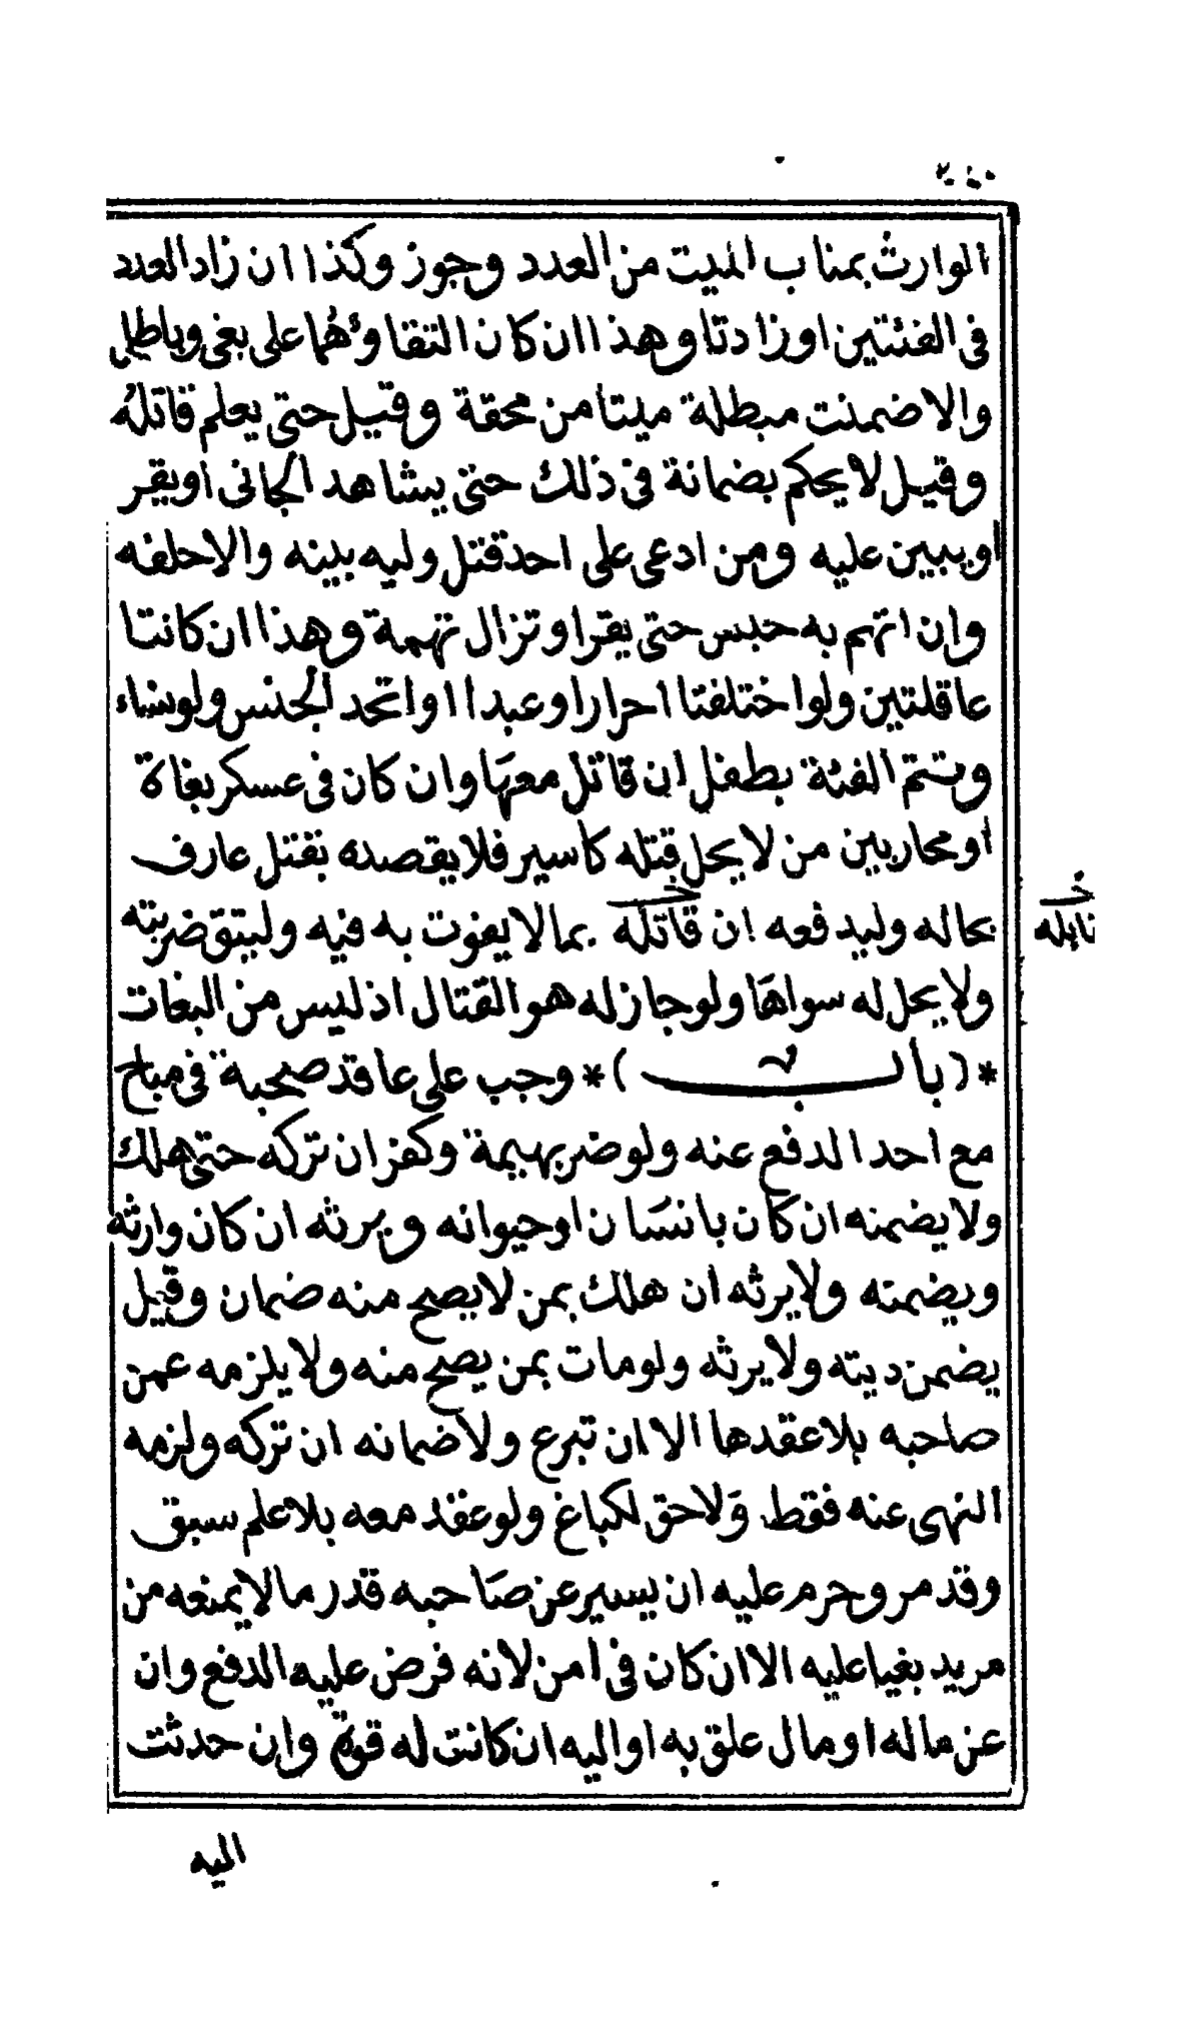 الوارث بمناب الميت من العدد وجوز وكذا ان زاد العدد
فى الفئتين اوزادتا وهذا ان كان التقاؤهما على بغى وباطل
والا ضمنت مبطلة ميتا من محقة وقيل حتى يعلم قاتله
وقيل لا يحكم بضمانة فى ذلك حتى يشاهد الجانى أويقر
اويبين عليه ومن ادعى على احد قتل وليه بينه والا حلفه
وان اتهم به حبس حتى يقر اوتزال تهمة وهذا ان كانتا
عاقلتين ولو اختلفتا احرارا وعبدا او اتحد الجنس ولونساء
وتتم الفئة بطفل ان قاتل معها وان كان فى عسكر بغاة
أو محاربين من لا يحل قتله كاسير فلا يقصده بقتل عارف
بحاله وليدفعه ان قاتله بما لا يفوت به فيه وليتق ضربته
خ
نابله
ولا يحل له سواها ولوجاز له هو القتال اذ ليس من البغات
*(باب)* وجب على عاقد صحبة فى مباح
مع احد الدفع عنه ولو ضر بهيمة وكفر ان تركه حتى هلك
ولا يضمنه ان كان بانسان اوحيوانه ويرثه ان كان وارثه
ويضمنه ولا يرثه ان هلك بمن لا يصح منه ضمان وقيل
يضمن ديته ولا يرثه ولومات بمن يصح منه ولا يلزمه عمن
صاحبه بلا عقدها الا ان تبرع ولا ضمانه ان تركه ولزمه
النهى عنه فقط ولا حق لكباغ ولوعقد معه بلا علم سبق
وقد مر وحرم عليه ان يسير عن صاحبه قدر ما لا يمنعه من
مريد بغيا عليه الا ان كان فى امن لانه فرض عليه الدفع وان
عن ماله اومال علق به او اليه ان كانت له قوة وان حدثت
اليه